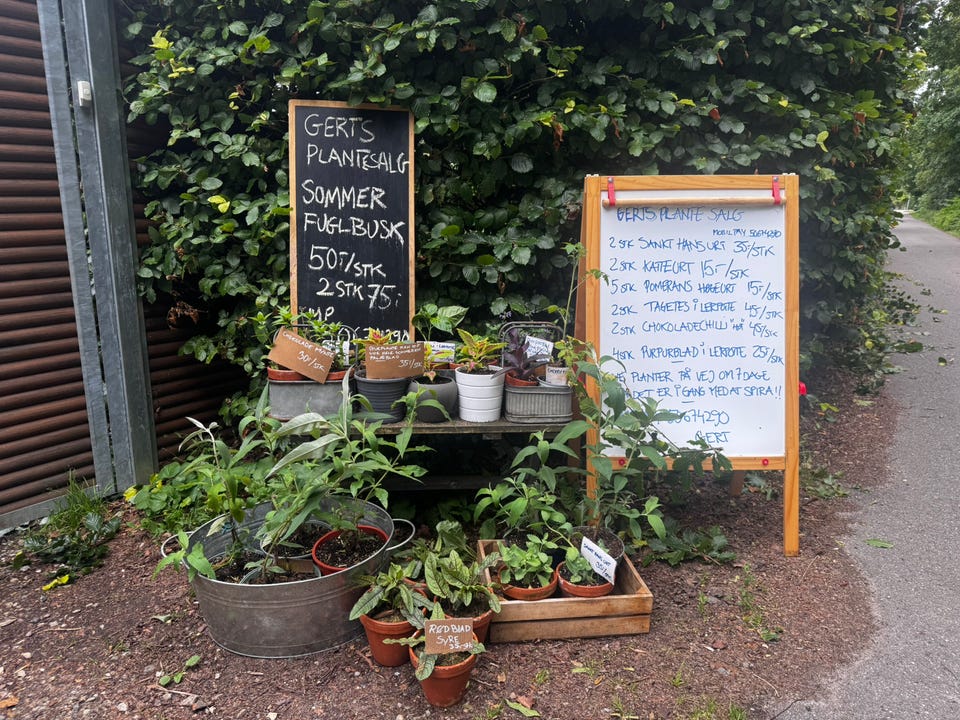 GERTS
PLANTESALG
SOMMER
FUGLBUSK
50,-/STK
2 STK 75,-
GERTS PLANTE SALG
MOBILPAY 50674290
2 STK SANKT HANSURT 35,-/STK
2 STK KATTEURT 15,-/STK
5 STK POMERANS HØGEURT 15,-/STK
2 STK TAGETES I LERPOTE 45,-/STK
2 STK CHOKOLADECHILI "HOT" 45/STK
4 STK PURPURBLAD I LERPOTE 25,-/STK
PLANTER PÅ VEJ OM 7 DAGE
DET ER I GANG MED AT SPIRA!!
GERT
CHOKOLADE
30,-/STK
35,-/STK
RØDBLAD
SYRE
35,-